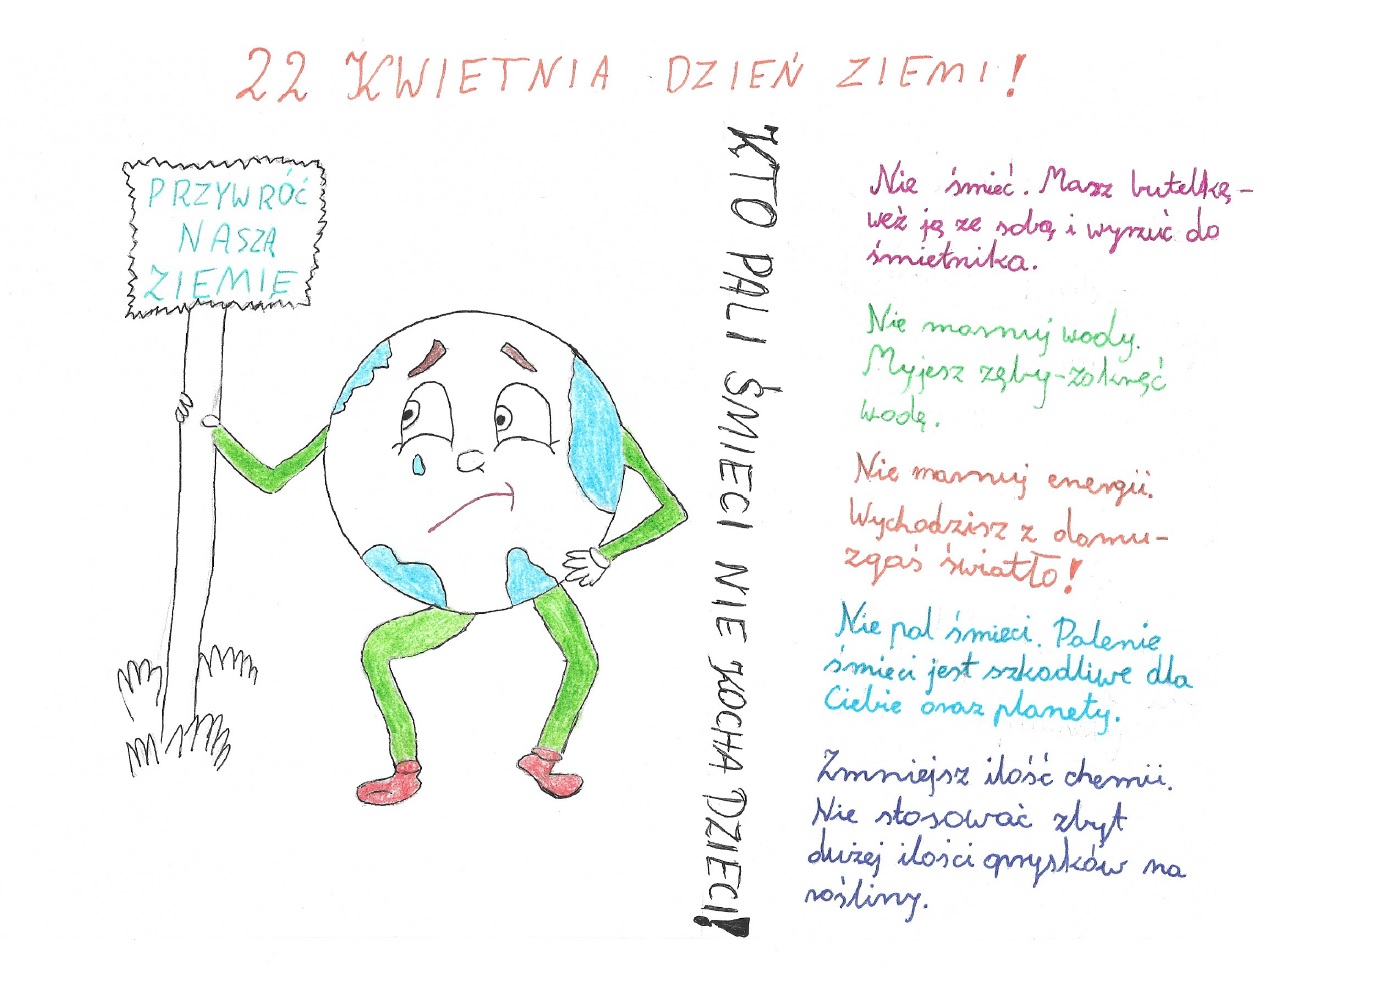 22 KWIETNIA DZIEŃ ZIEMI!
PRZYWRÓĆ
NASZĄ
ZIEMIĘ
KTO PALI ŚMIECI NIE KOCHA DZIECI!
Nie śmieć. Masz butelkę-
weź ją ze sobą i wyrzuć do
śmietnika.
Nie marnuj wody.
Myjesz zęby-zakręć
wodę.
Nie marnuj energii.
Wychodzisz z domu-
zgaś światło!
Nie pal śmieci. Palenie
śmieci jest szkodliwe dla
Ciebie oraz planety.
Zmniejsz ilość chemii.
Nie stosować zbyt
dużej ilości oprysków na
rośliny.